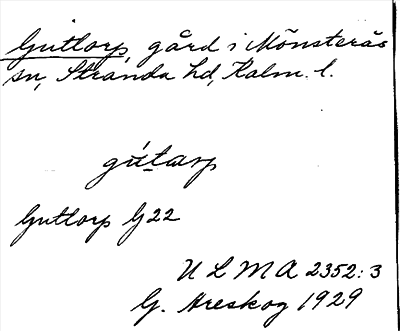 Guttorp, gård i Mönsterås
sn, Stranda hd, Kalm. l.
gutarp
Guttorp G22
U L M A 2352:3
G. Areskog 1929